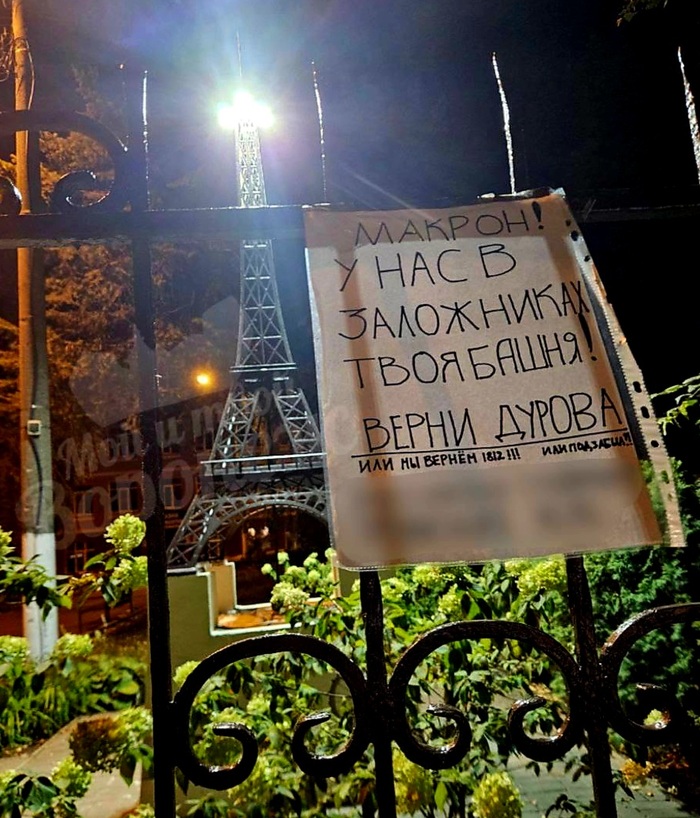 МАКРОН!
У НАС В
ЗАЛОЖНИКАХ
ТВОЯ БАШНЯ!
ВЕРНИ ДУРОВА
ИЛИ МЫ ВЕРНЁМ 1812!!! ИЛИ ПОДЗАБЫЛ!!
Мой и твой